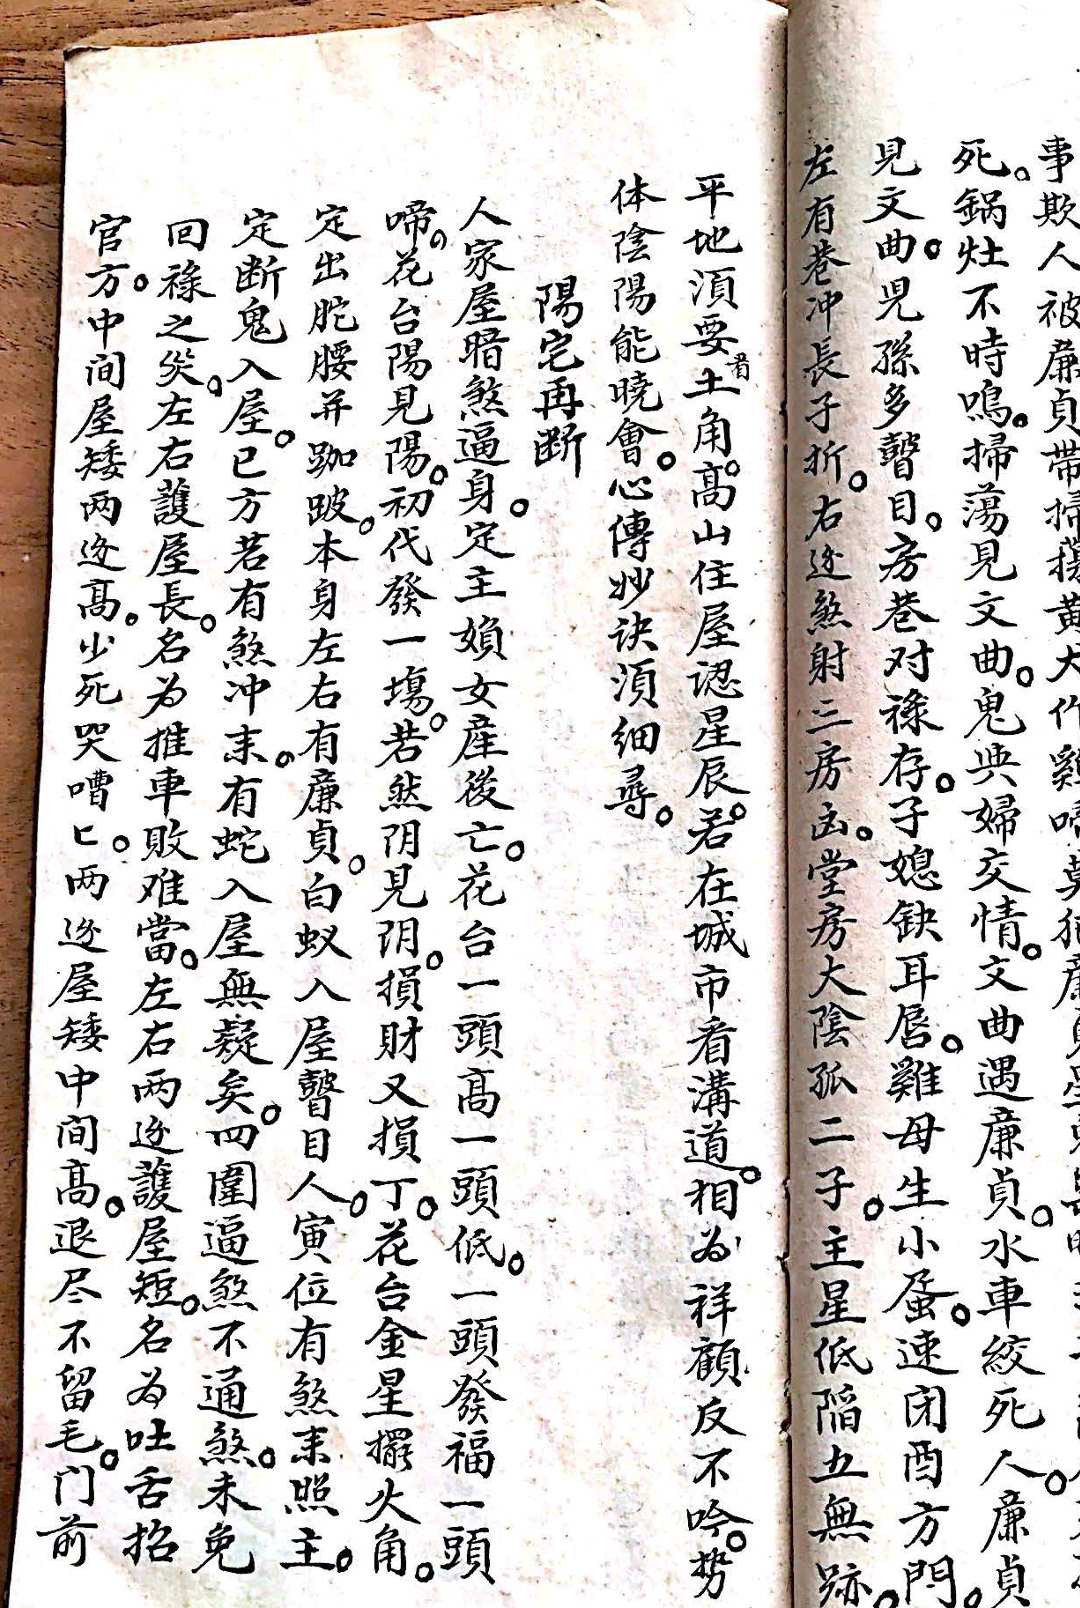 事欺人被廉貞帶掃蕩黄犬作雞啼莫犯廉貞
死。鍋灶不時鳴。掃蕩見文曲。鬼與婦交情。文曲遇廉貞。水車絞死人。廉貞
見文曲。児孫多瞽目。房巷对祿存。子媳缺耳唇。雞母生小蛋。速闭酉方門。
左有巷冲長子折。右边煞射三房凶。堂房大陰孤二子。主星低陷五無跡。
平地須要看土角。高山住屋認星辰。若在城市看溝道。相為祥顧反不吟。势
体陰陽能曉會。心傳妙诀須细尋。
陽宅再断
人家屋暗煞逼身。定主媍女産後亡。花台一頭高一頭低。一頭發福一頭
啼。花台陽見陽。初代發一塲。若然阴見阴。損財又損丁。花台金星擺火角。
定出脞腰并跏跛。本身左右有廉貞。白蚁入屋瞽目人。寅位有煞来照主。
定断鬼入屋。巳方若有煞冲来。有蛇入屋無疑矣。四圍逼煞不通煞。未免
回祿之災。左右護屋長。名为推車敗难當。左右两边護屋短。名为吐舌招
官方。中间屋矮两边高。少死哭嘈匕。两边屋矮中间高。退尽不留毛。门前